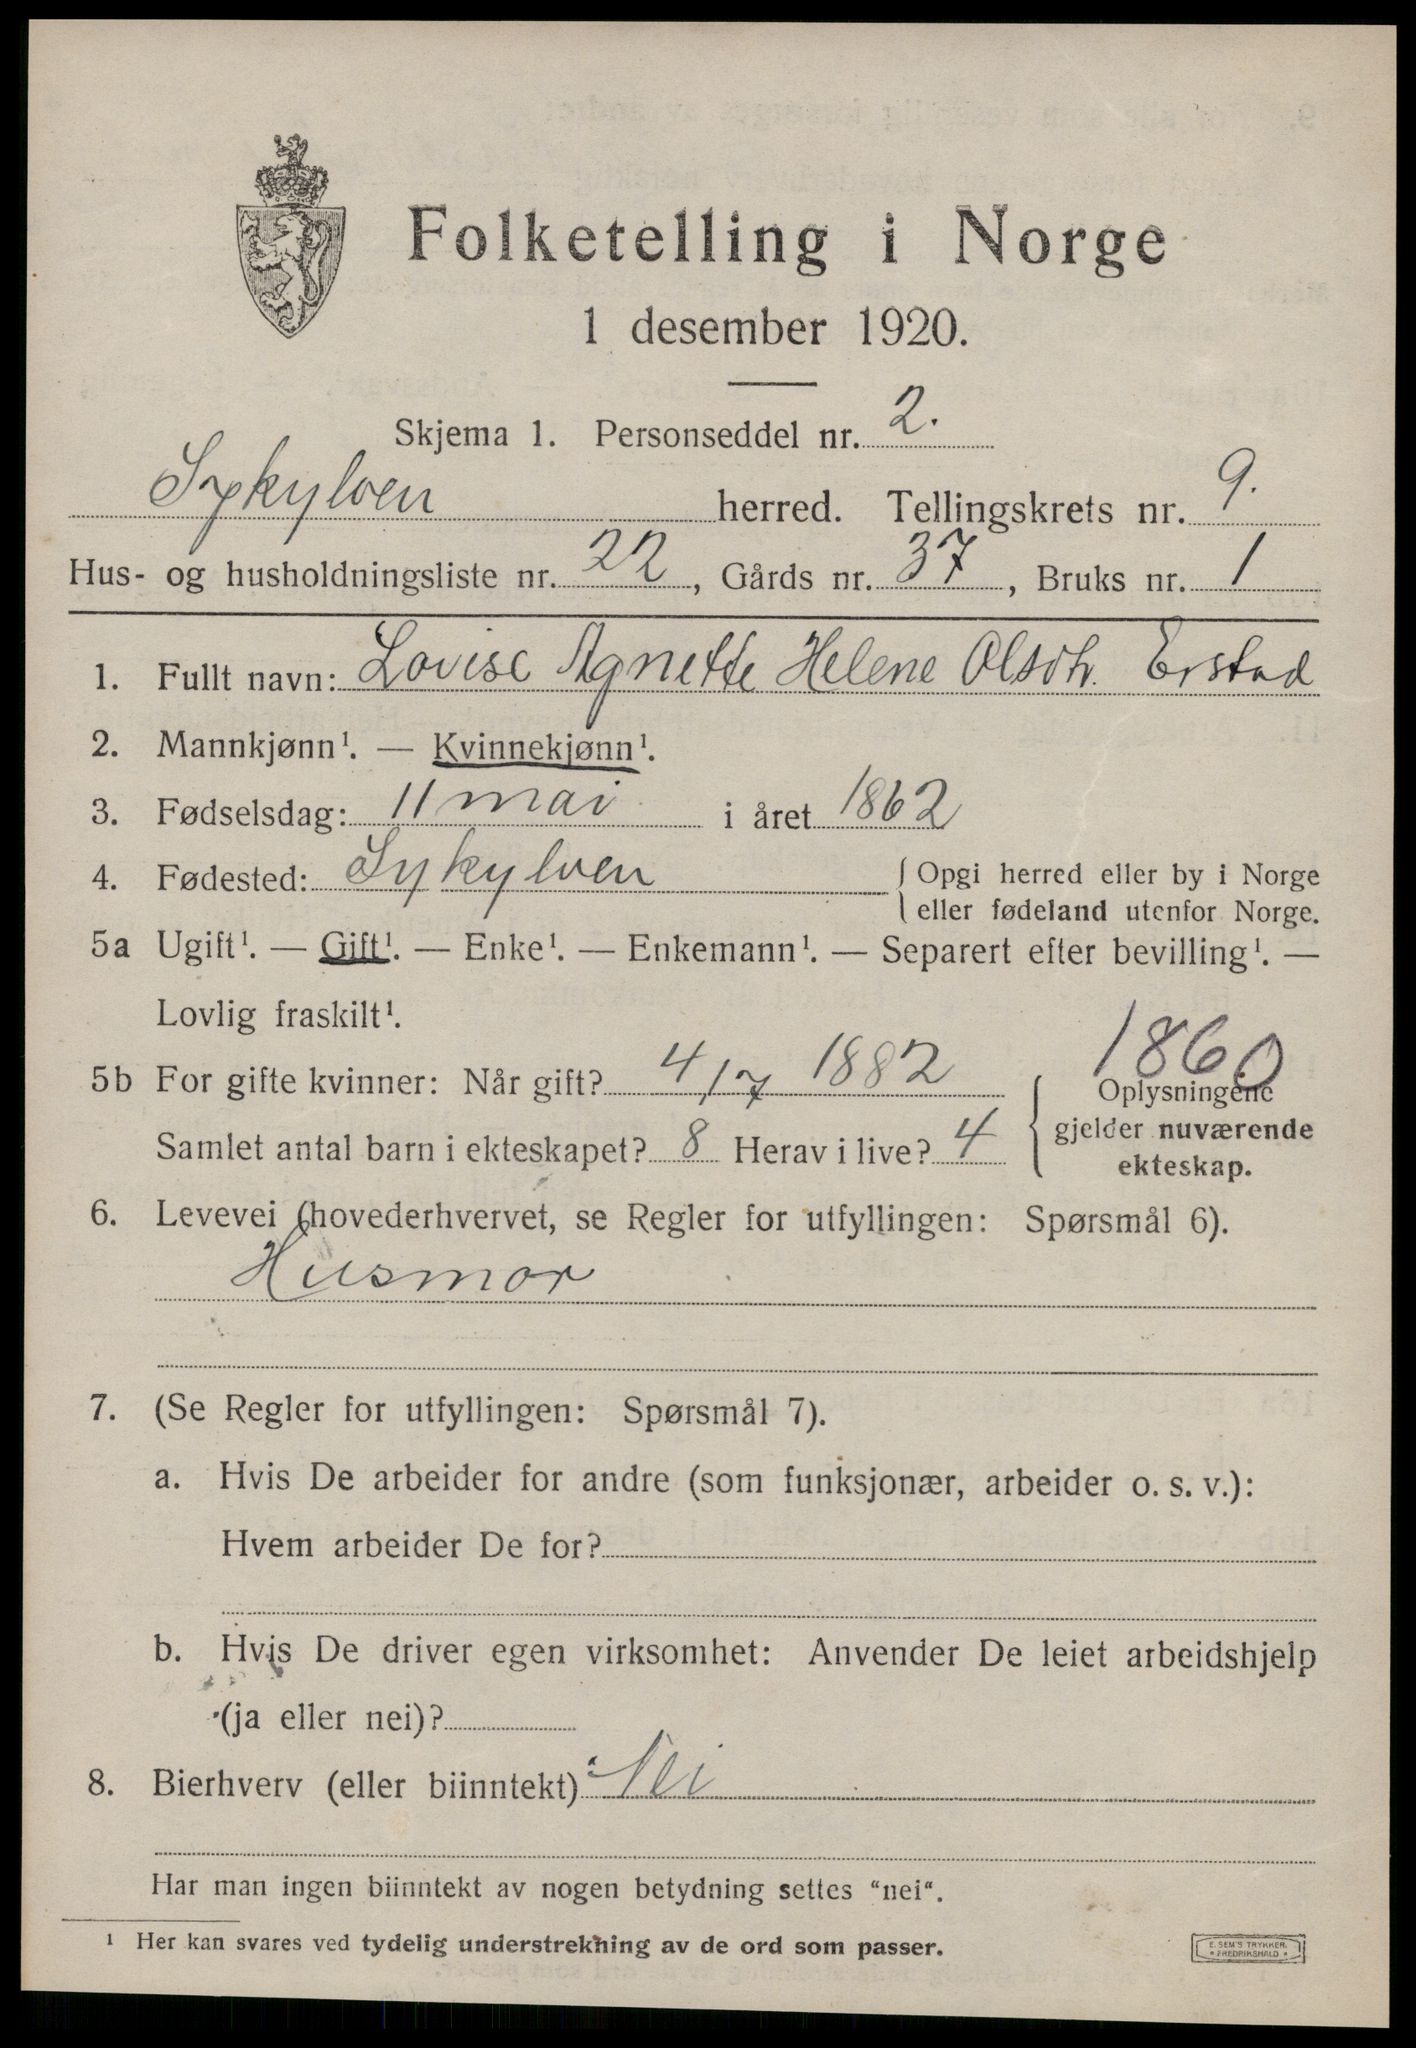 Folketelling i Norge
1 desember 1920.
Skjema 1. Personseddel nr. 2.
Sykylven herred. Tellingskrets nr. 9.
Hus- og husholdningsliste nr. 22, Gårds nr. 37, Bruks nr. 1
1. Fullt navn: Lovise Agnette Helene Olsdtr. Erstad
2. Mannkjønn¹. — Kvinnekjønn¹.
3. Fødselsdag: 11 mai i året 1862
4. Fødested: Sykylven { Opgi herred eller by i Norge
eller fødeland utenfor Norge.
5a Ugift¹. — Gift¹. — Enke¹. — Enkemann¹. — Separert efter bevilling¹. —
Lovlig fraskilt¹.
1860
5b For gifte kvinner: Når gift? 4/7 1882 { Oplysningene
Samlet antal barn i ekteskapet? 8 Herav i live? 4 gjelder nuværende
ekteskap.
6. Levevei (hovederhvervet, se Regler for utfyllingen: Spørsmål 6).
Husmor
7. (Se Regler for utfyllingen: Spørsmål 7).
a. Hvis De arbeider for andre (som funksjonær, arbeider o. s. v.):
Hvem arbeider De for?
b. Hvis De driver egen virksomhet: Anvender De leiet arbeidshjelp
(ja eller nei)?
8. Bierhverv (eller biinntekt) Nei
Har man ingen biinntekt av nogen betydning settes "nei".
¹ Her kan svares ved tydelig understrekning av de ord som passer.
E. SEM'S TRYKKER.
FREDRIKSHALD